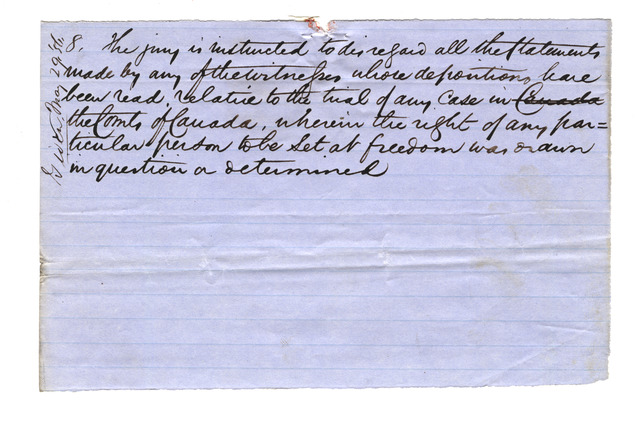 8. The jury is instructed to disregard all the statements
made by any of the witnesses whose depositions have
been read, relative to the trial of any case in Canada
the Corts of Canada, wherein the right of any par=
ticular person to be set at freedom was drawn
in question or determined
May 29